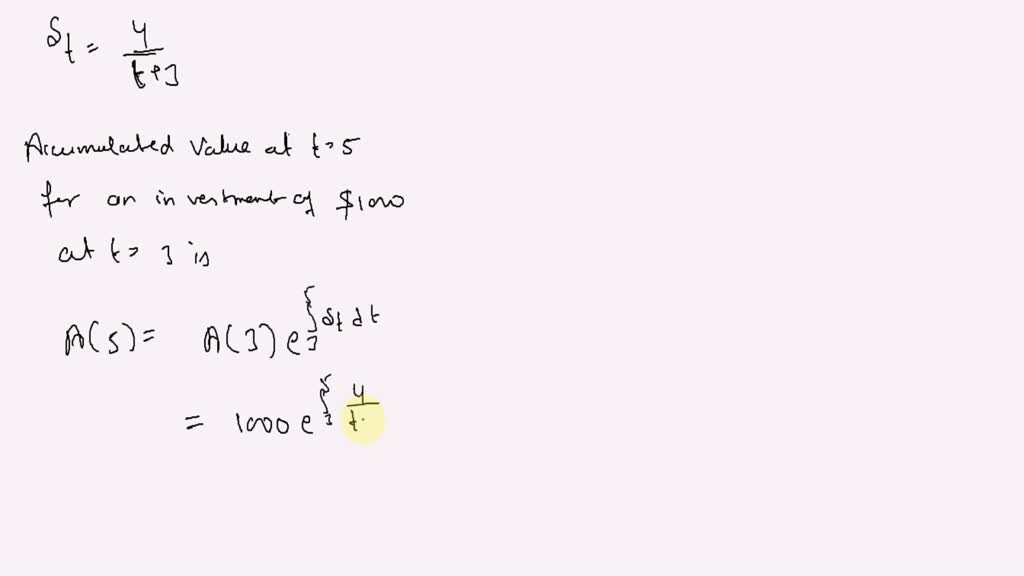 δ_t = 4/(t+3)
Accumulated Value at t=5
for an investment of $1000
at t= 3 is
A(5)= A(3) e^{∫_3^5 δ_t dt}
= 1000 e^{∫_3^5 4/t·